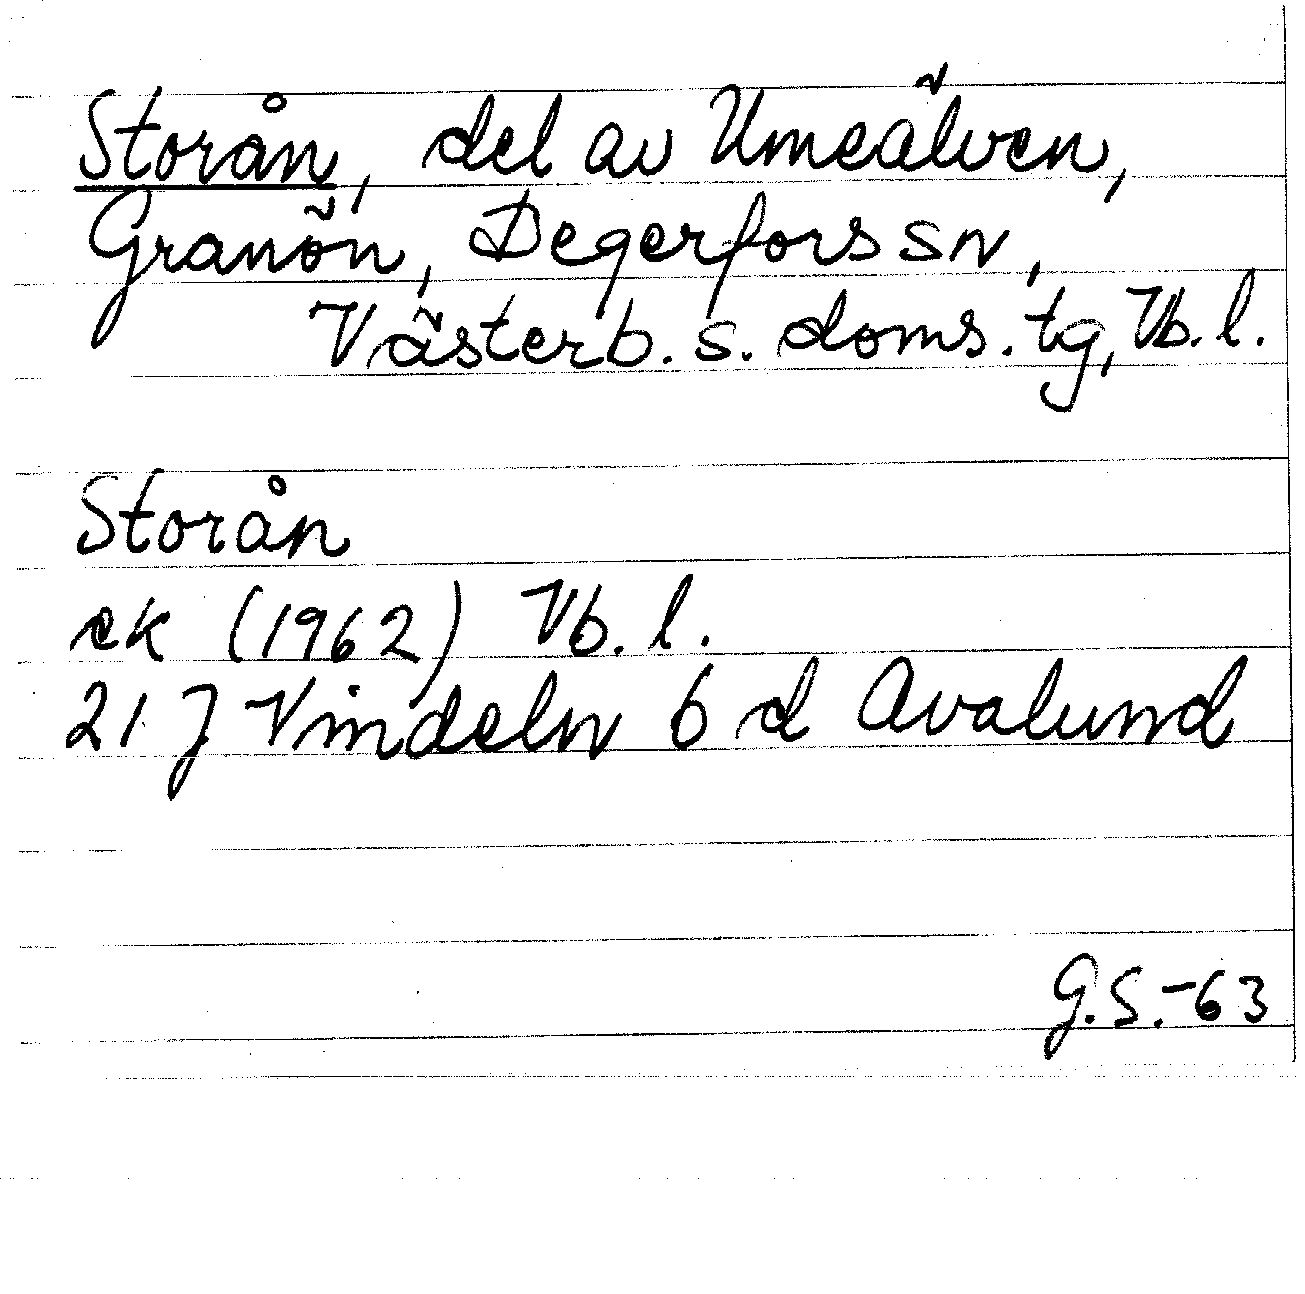 Storån, del av Umeälven,
Granön, Degerfors sn,
Västerb. s. doms. tg, Vb. l.
Storån
ek (1962) Vb. l.
21 J Vindeln 6 d Avalund
G.S.-63